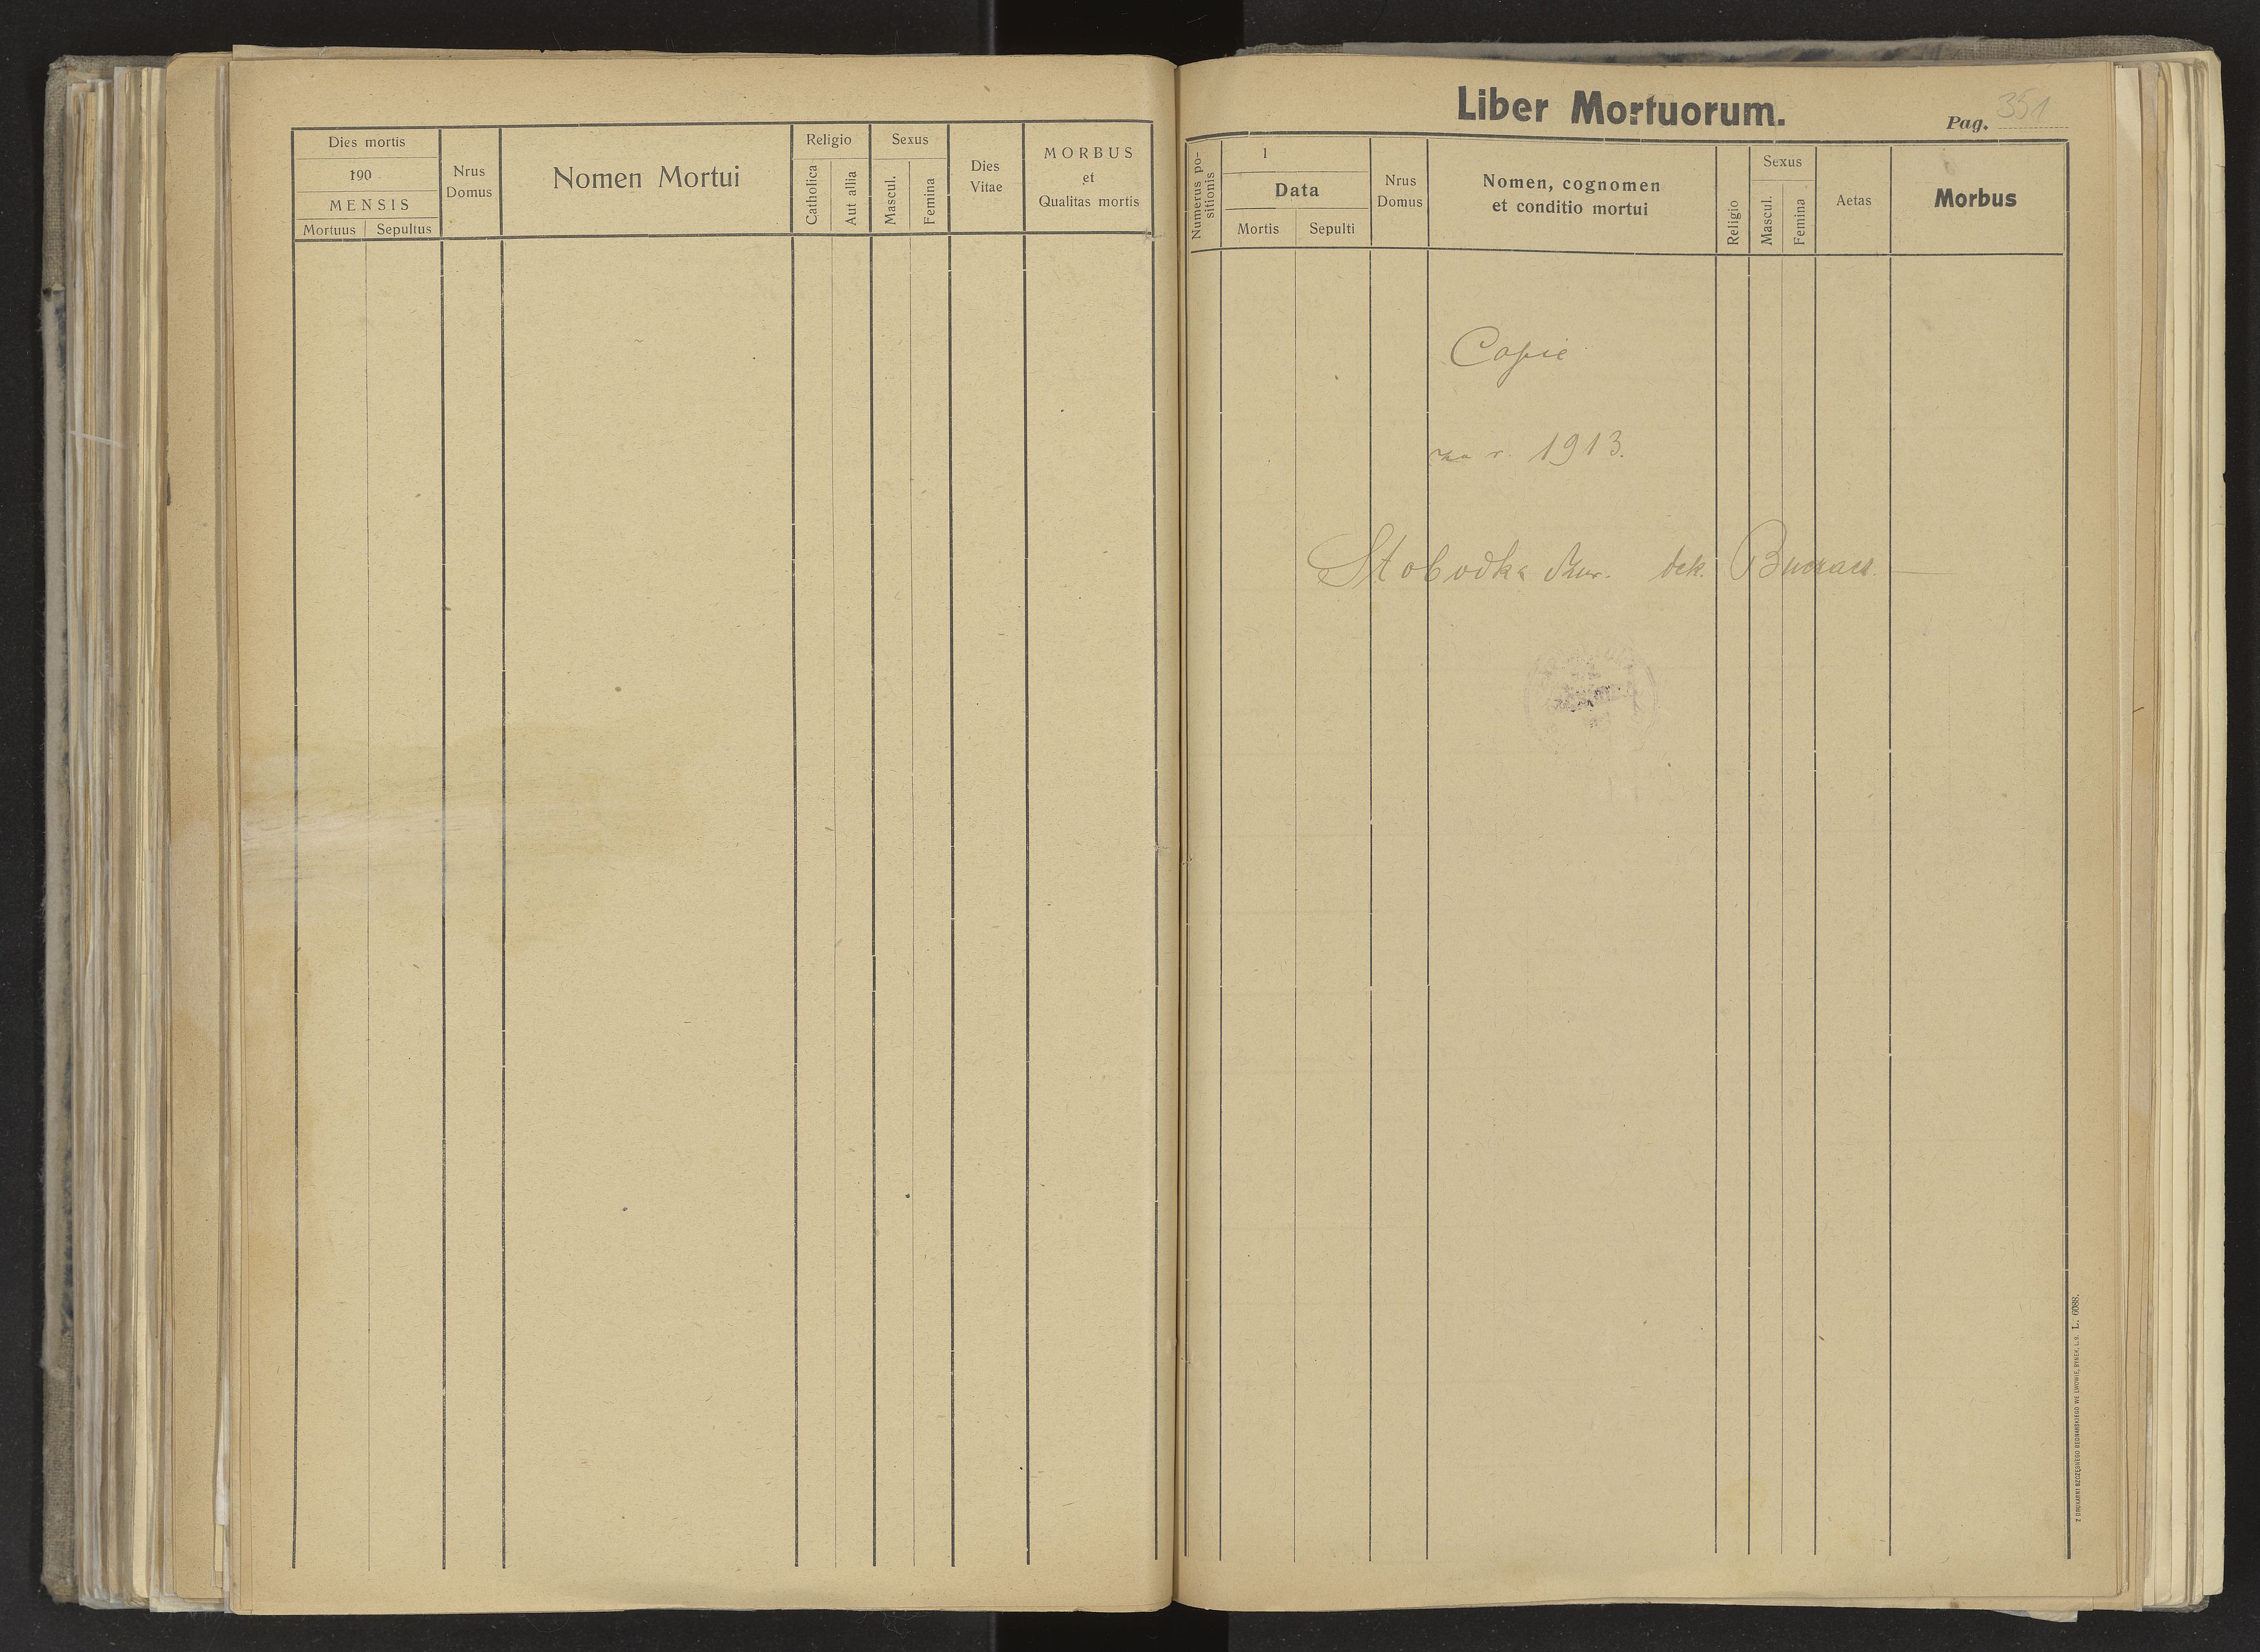 Dies mortis
190
MENSIS
Mortuus Sepultus
Nrus
Domus
Nomen Mortui
Religio
Catholica
Aut allia
Sexus
Mascul.
Femina
Dies
Vitae
MORBUS
et
Qualitas mortis
Liber Mortuorum.
Pag. 351
Numerus po-
sitionis
1
Data
Mortis Sepulti
Nrus
Domus
Nomen, cognomen
et conditio mortui
Religio
Sexus
Mascul.
Femina
Aetas
Morbus
Copie
za r. 1913.
Słobodka dek. Buczacz
Z DRUKARNI SZCZĘSNEGO BEDNARSKIEGO WE LWOWIE, RYNEK, L. 9. L. 6088.